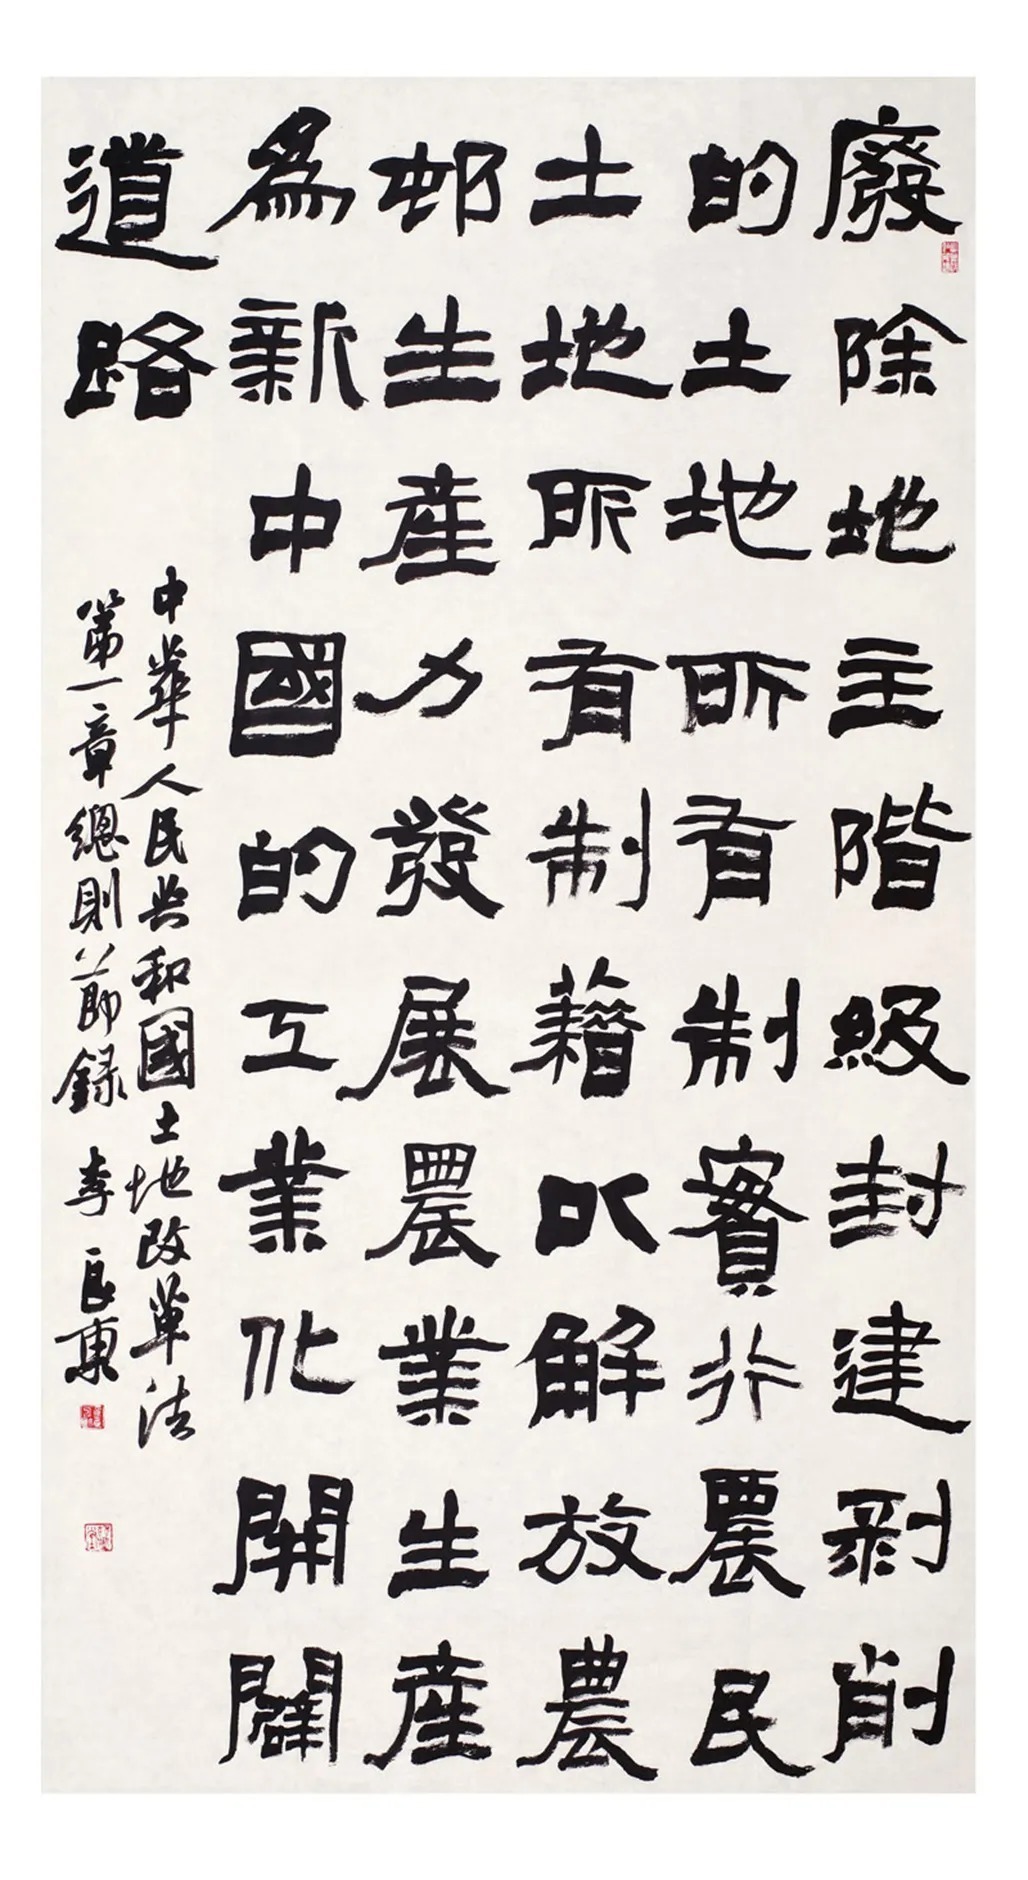 廢除地主階級封建剥削
的土地所有制實行農民
土地所有制藉以解放農
邨生産力發展農業生産
爲新中國的工業化開闢
道路
中華人民共和國土地改革法
第一章總則節録 李良東